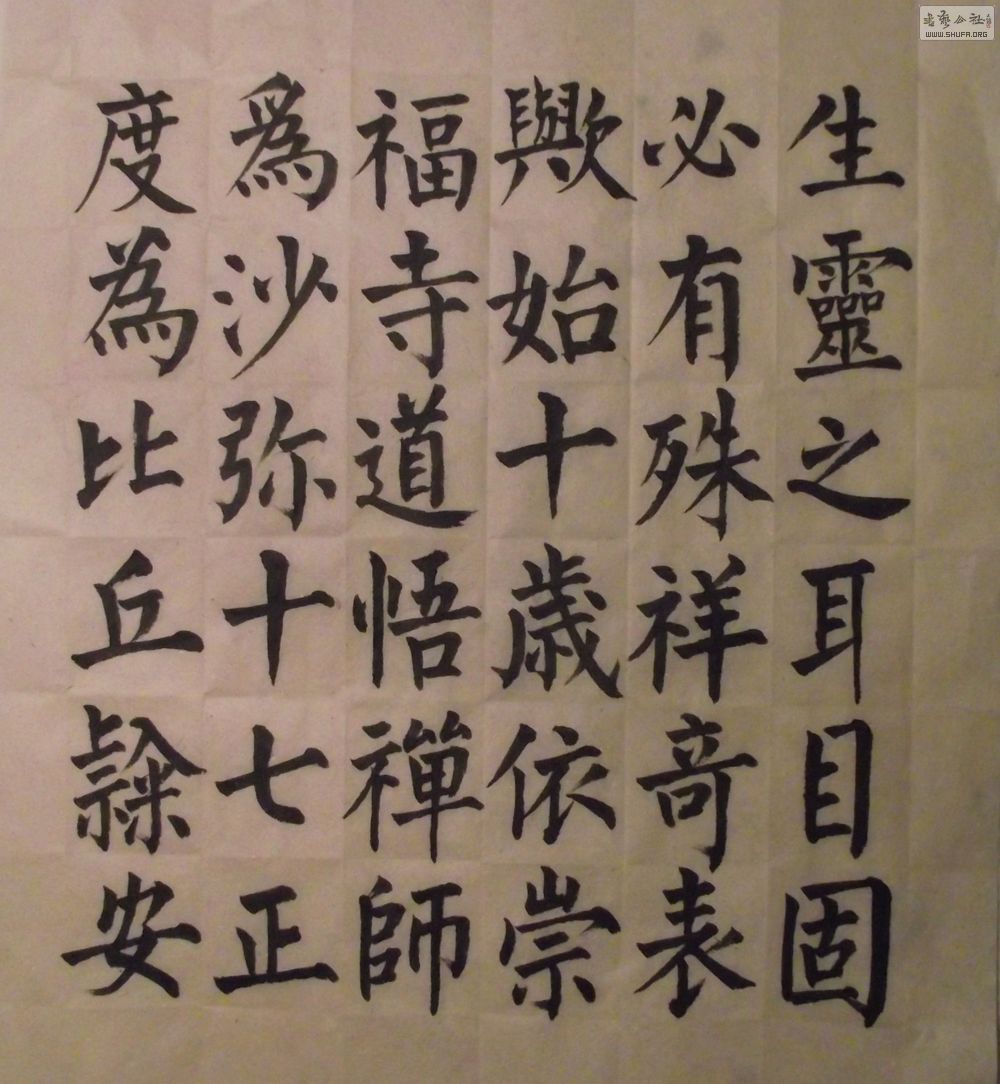 生靈之耳目固
必有殊祥奇表
歟始十歲依崇
福寺道悟禪師
為沙弥十七正
度為比丘隸安
書藝公社
WWW.SHUFA.ORG